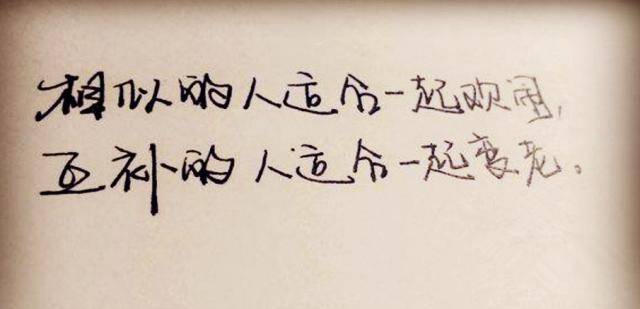 相似的人适合一起欢闹，
互补的人适合一起变老。